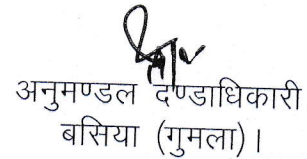 अनुमण्डल दण्डाधिकारी
बसिया (गुमला)।